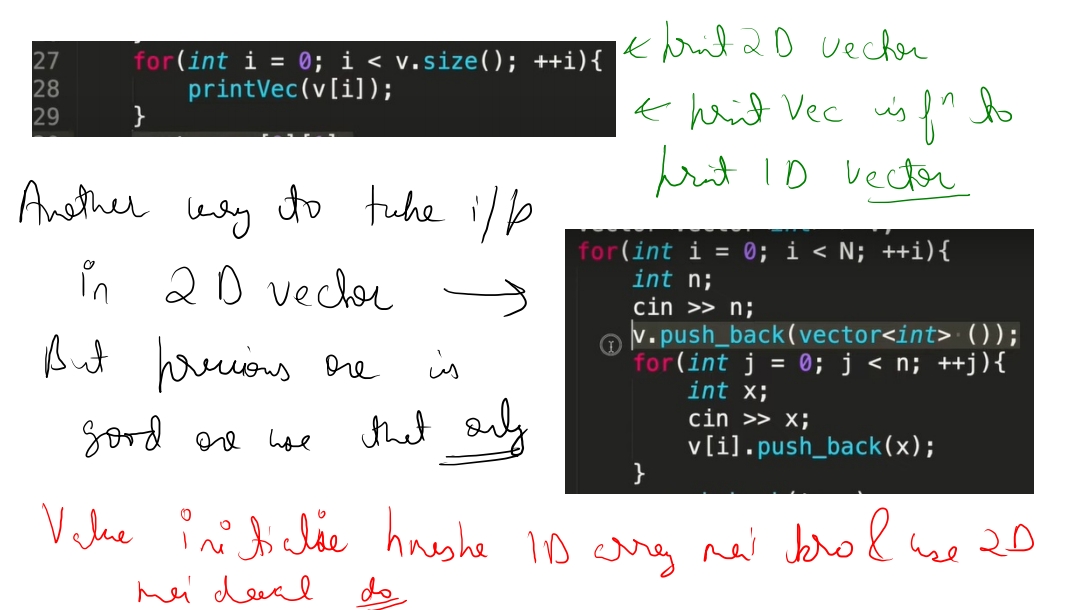 27 for(int i = 0; i < v.size(); ++i){
28 printVec(v[i]);
29 }
← print 2D vector
← print Vec is fⁿ to
print 1D vector
Another way to take i/p
in 2D vector →
But previous one is
good one use that only
for(int i = 0; i < N; ++i){
int n;
cin >> n;
v.push_back(vector<int> ());
for(int j = 0; j < n; ++j){
int x;
cin >> x;
v[i].push_back(x);
}
Value initialise hmesha 1D array mei kro & use 2D
mei daal do